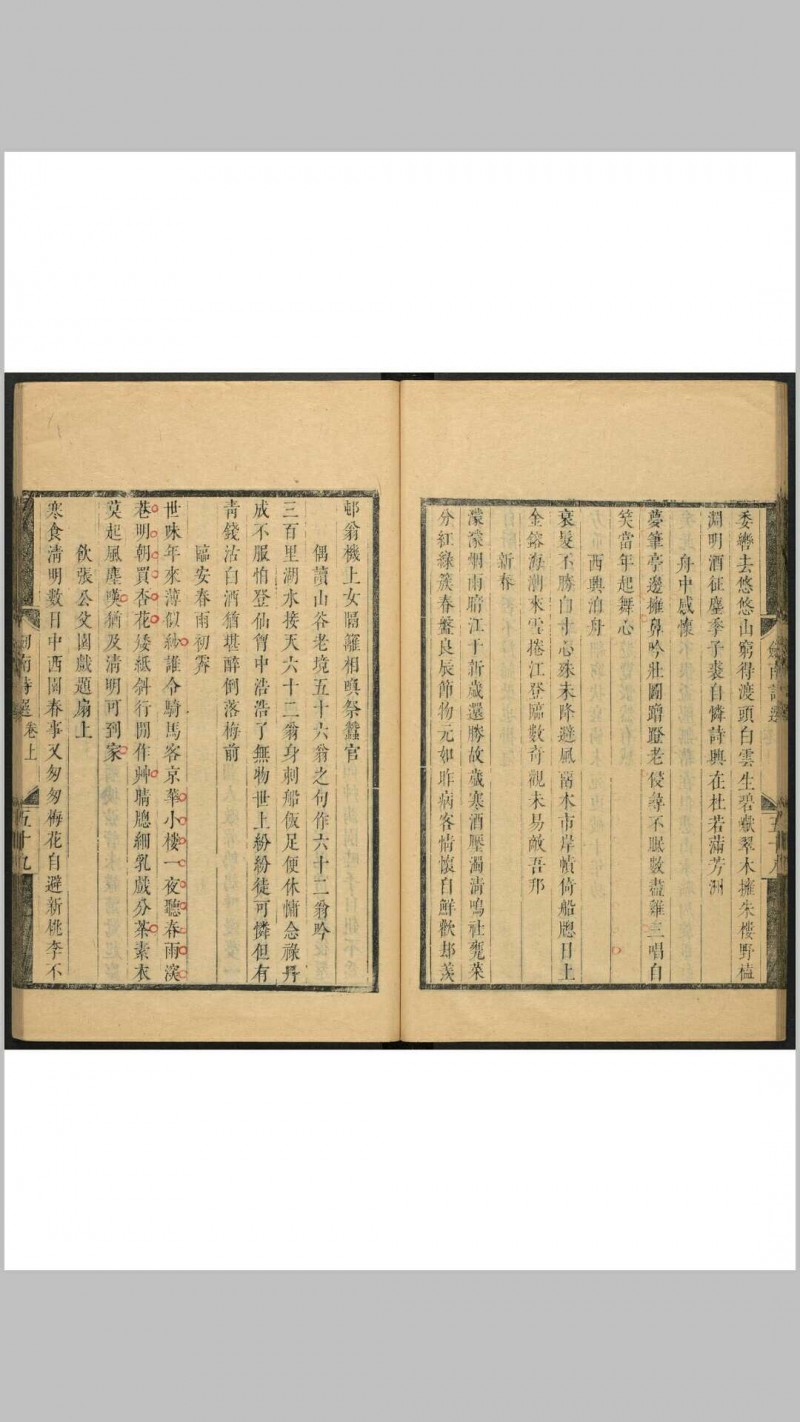 委轡去悠悠山窮得渡頭白雲生碧巘翠木擁朱樓野榼
淵明酒征塵季子裘自憐詩興在杜若滿芳洲
舟中感懷
夢筆亭邊擁鼻吟壯圖蹭蹬老侵尋不眠數盡雞三唱自
笑當年起舞心
西興泊舟
衰髮不勝白寸心殊未降避風畱木市岸幘倚船牕日上
金鎔海潮來雪捲江登臨數奇觀未易敵吾邦
新春
濛濛烟雨暗江干新歲還勝故歲寒酒壓濁淸鳴社甕菜
分紅綠簇春盤良辰節物元如昨病客情懷自鮮歡却羨
劍南詩選
五十八
邨翁機上女隔籬相喚祭蠶官
偶讀山谷老境五十六翁之句作六十二翁吟
三百里湖水接天六十二翁身刺船飯足便休慵念祿丹
成不服怕登仙胷中浩浩了無物世上紛紛徒可憐但有
靑錢沽白酒猶堪醉倒落梅前
臨安春雨初霽
世味年來薄似紗誰令騎馬客京華小樓一夜聽春雨深
巷明朝買杏花矮紙斜行閒作艸晴牕細乳戲分茶素衣
莫起風塵嘆猶及淸明可到家
飲張公父園戲題扇上
寒食淸明數日中西園春事又匆匆梅花自避新桃李不
劍南詩選 卷上
五十九